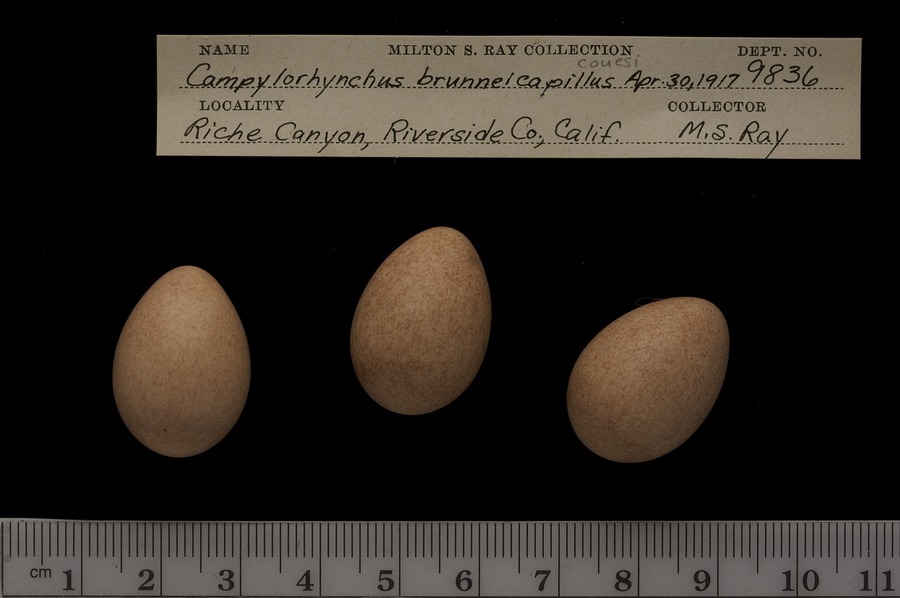 NAME MILTON S. RAY COLLECTION DEPT. NO.
couesi
Campylorhynchus brunneicapillus Apr. 30, 1917 9836
LOCALITY COLLECTOR
Riche Canyon, Riverside Co., Calif. M.S. Ray
cm 1 2 3 4 5 6 7 8 9 10 11